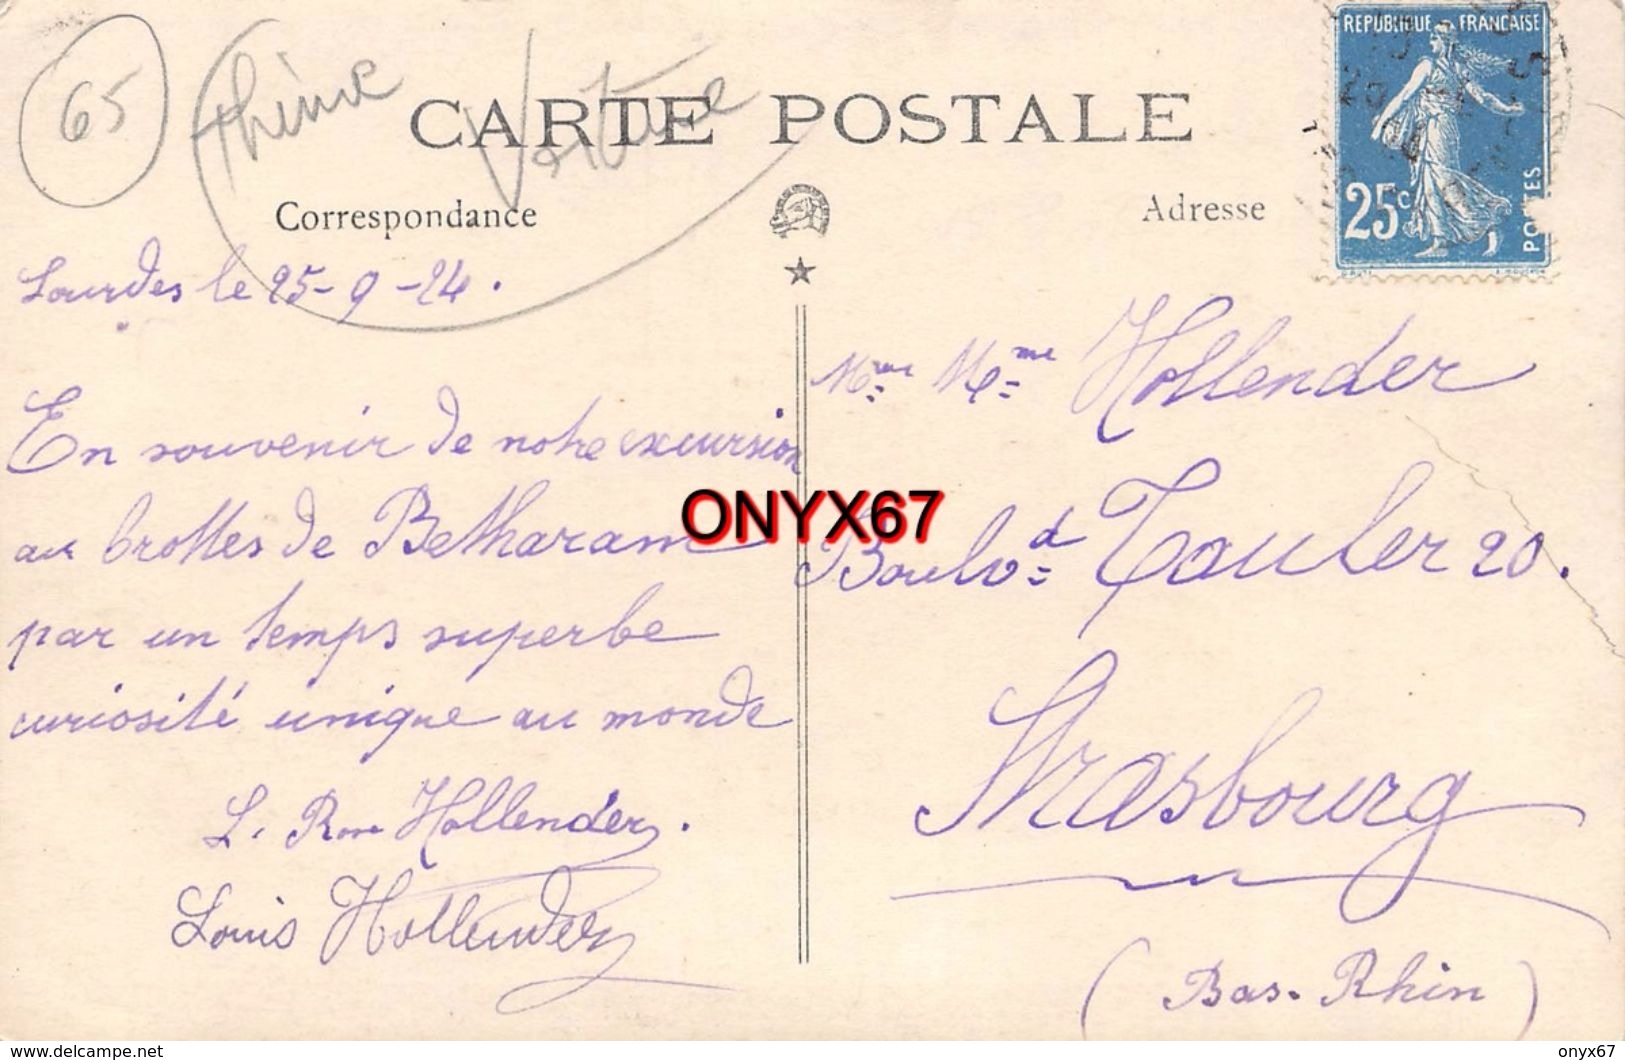 65
thème
Voiture
CARTE POSTALE
Correspondance
Adresse
REPUBLIQUE FRANÇAISE
25c
POSTES
Lourdes le 25-9-24.
En souvenir de notre excursion
aux Grottes de Betharam
par un temps superbe
curiosité unique au monde
L. Rose Hollender.
Louis Hollender
Mme Hollender
Boulvd Tauler 20.
Strasbourg
(Bas-Rhin)
ONYX67
https://www.delcampe.net
onyx67